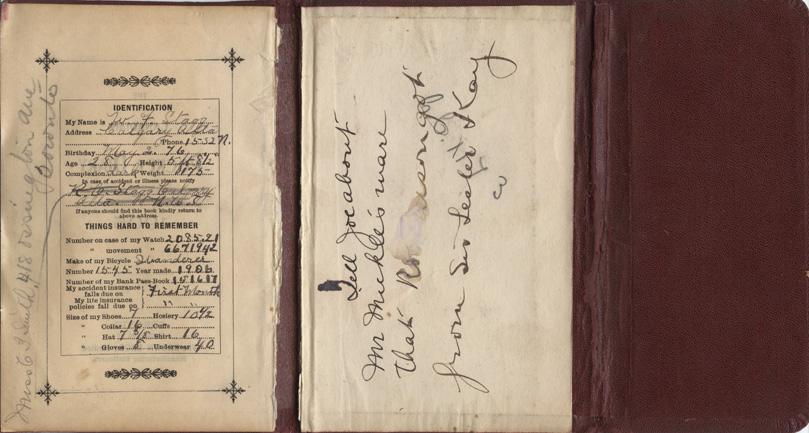 IDENTIFICATION
My Name is W. F. Stagg
Address Calgary Alta
Phone 1532 N.
Birthday May 2. 76
Age 28 Height 5 ft 8½
Complexion dark Weight 175
In case of accident or illness please notify
R. C. Stagg
Alta.
If anyone should find this book kindly return to
above address.
THINGS HARD TO REMEMBER
Number on case of my Watch 208521
" movement " 6671942
Make of my Bicycle Wanderer
Number 1545 Year made 1903
Number of my Bank Pass-Book 151617
My accident insurance
falls due on First Month
My life insurance
policies fall due on " "
Size of my Shoes 7 Hosiery 10½
" Collar 16 Cuffs
" Hat 7 Shirt 16
" Gloves 8 Underwear 40
418 Ossington ave
Toronto
Tell Joe about
Mr Mickle's mare
that
from Sir Lester Kay